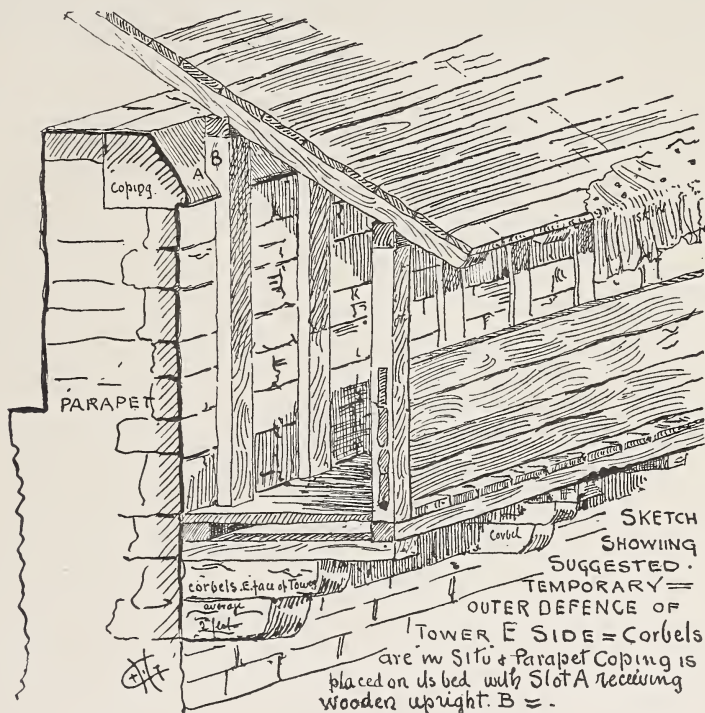 A B
Coping.
PARAPET
Corbel
corbels. E. face of Tower
average
2 feet
SKETCH
SHOWIING
SUGGESTED.
TEMPORARY =
OUTER DEFENCE OF
TOWER E SIDE = Corbels
are in Situ & Parapet Coping is
placed on its bed with Slot A receiving
wooden upright. B =.